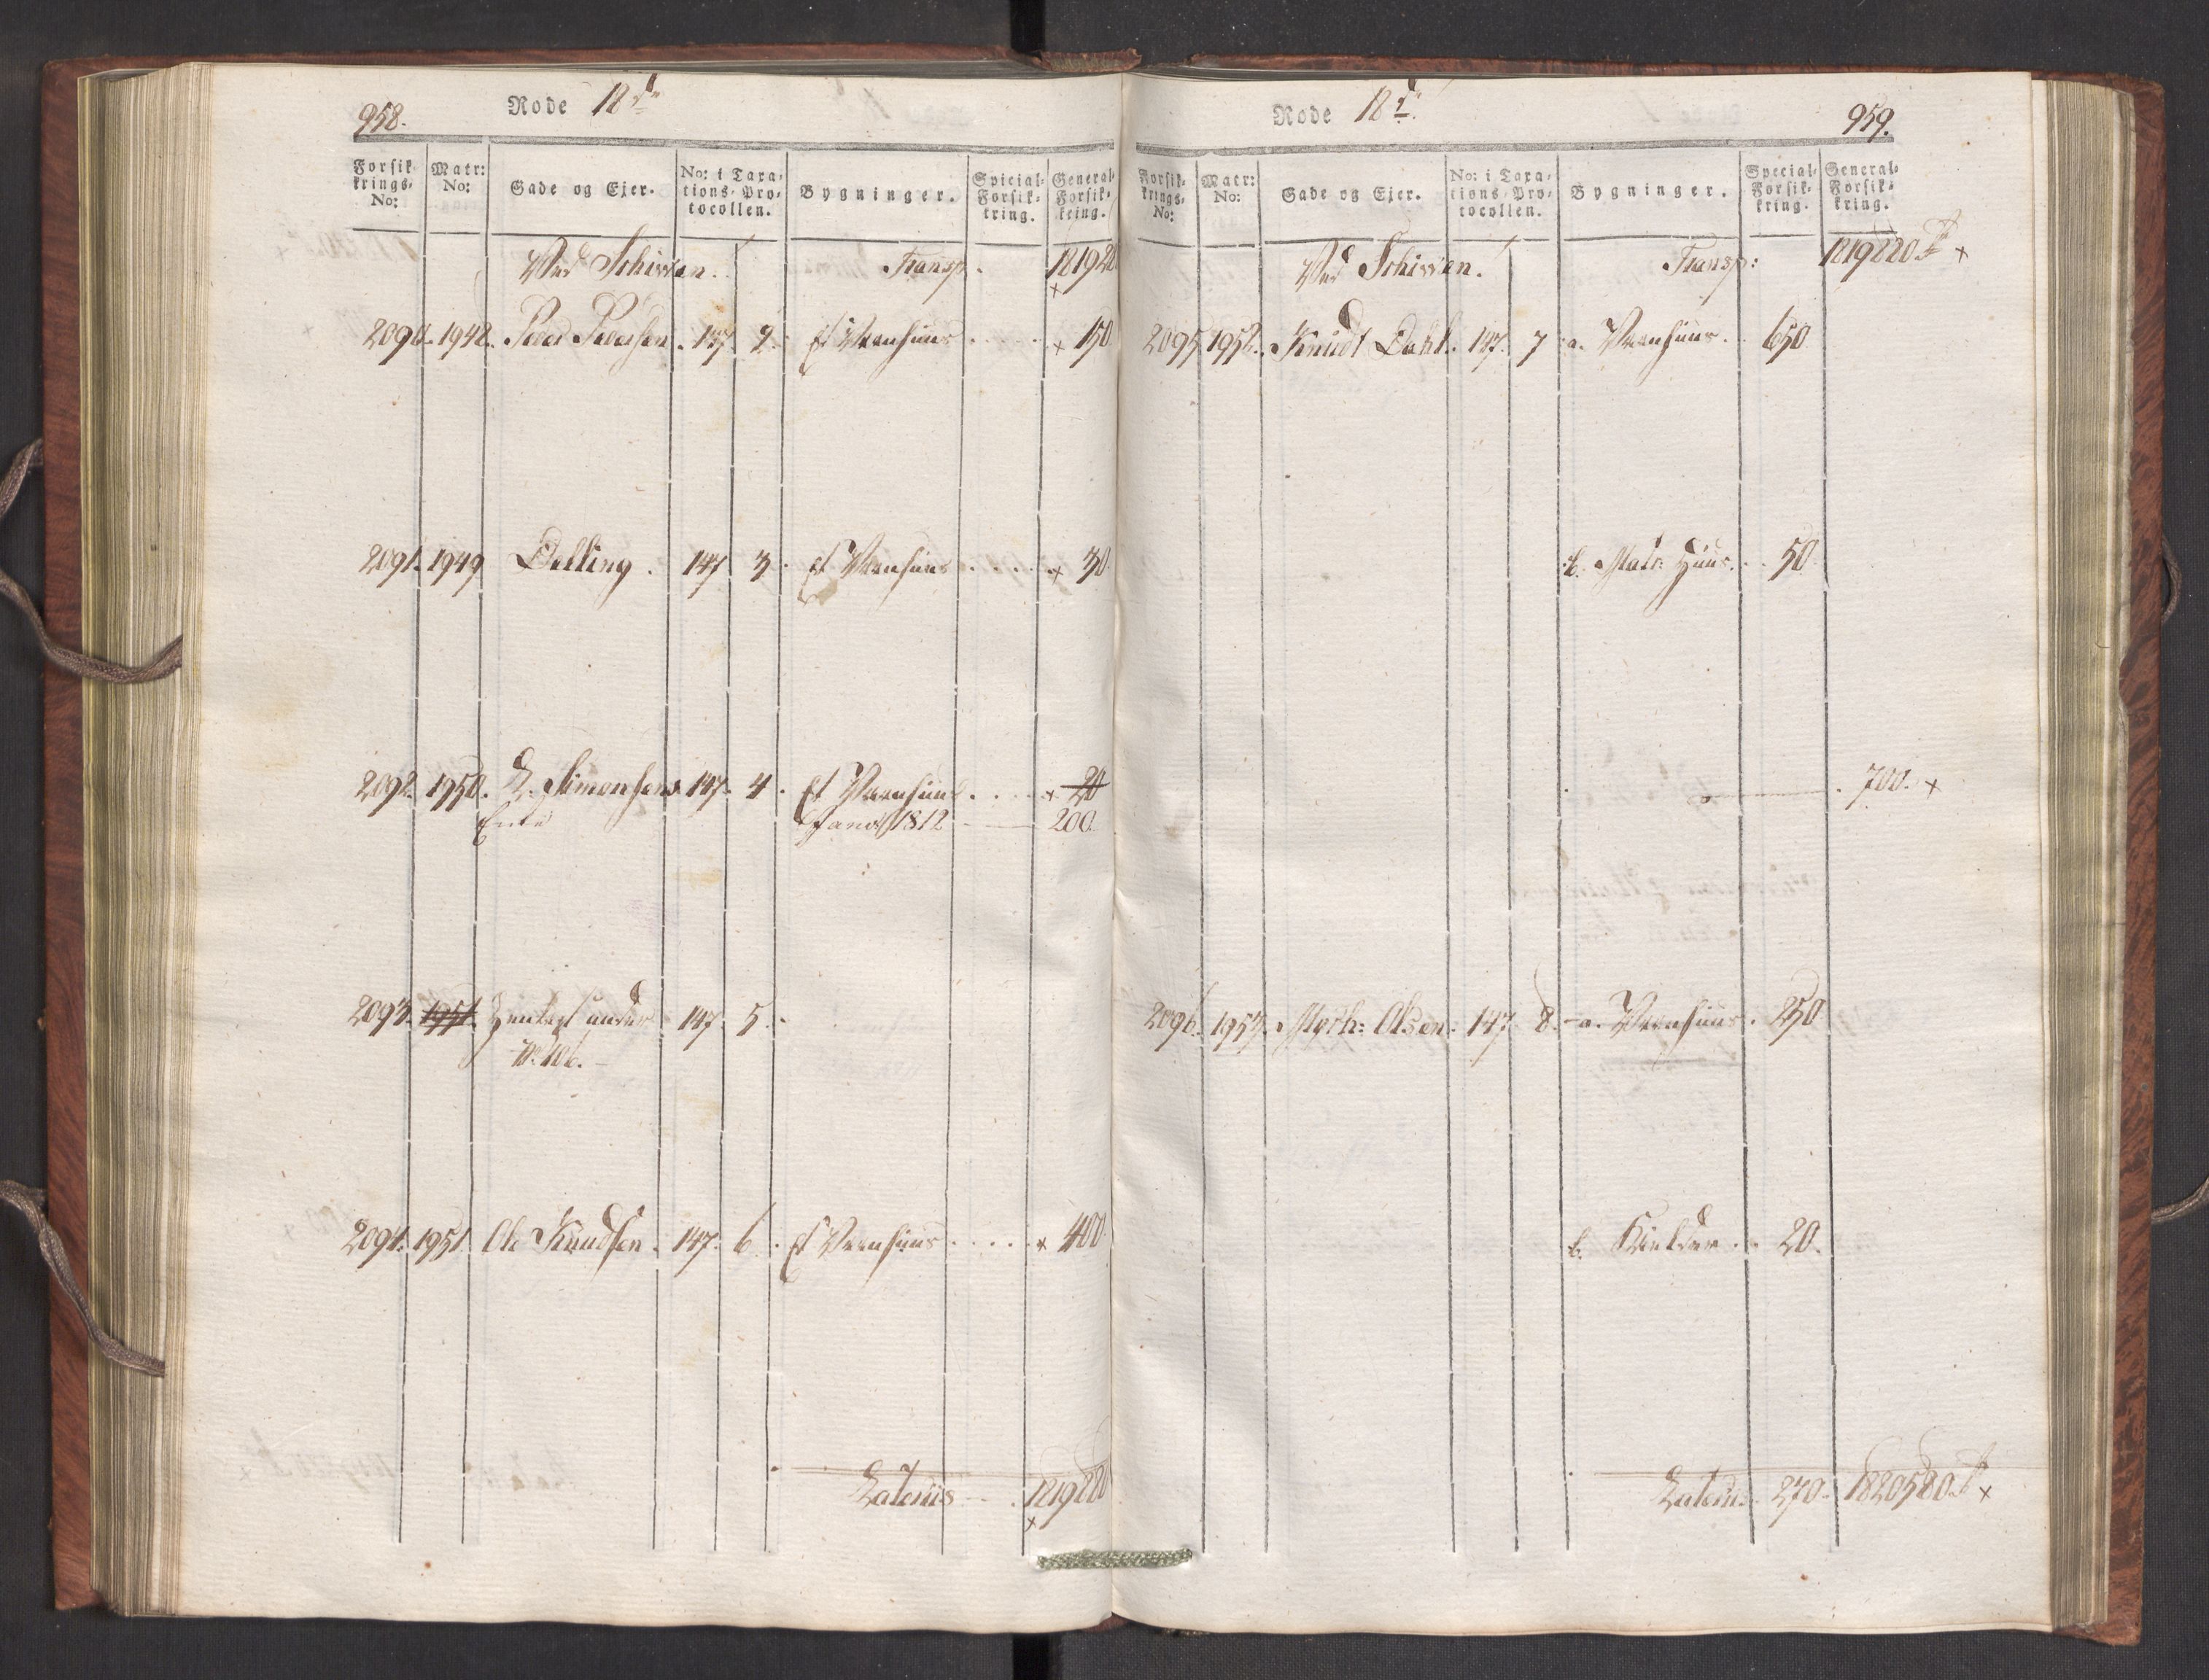 958.
Rode 18de
Forsikkrings-No: Matr: No: Gade og Ejer. No: i Taxations-Protocollen. Bygninger. Special-Forsikkring. General-Forsikkring.
Ved Schiven. Transp. 1819220
2090. 1948. Peder Pedersen. 147. 2. Et Vaanhuus . . . 150
2091. 1949 Delling. 147 3. Et Vaanhuus . . . . 30
2092. 1950. L. Simonsens 147. 4. Et Vaanhuus . . . . 20
Enke Janv 1812 200.
2093. 1951. Henlagt under 147. 5.
No. 406. -
2094. 1951. Ole Knudsen. 147. 6. Et Vaanhuus . . . . 400.
Laterus . . 1819220
959.
Rode 18de
Forsikkrings-No: Matr: No: Gade og Ejer. No: i Taxations-Protocollen. Bygninger. Special-Forsikkring. General-Forsikkring.
Ved Schiven. Transp: 1819220
2095 1952. Knudt Dahl. 147. 7 a. Vaanhuus . . 650
b. Mats: Huus . . 50.
. 700. +
2096. 1953. Morth: Olsen. 147. 8. a. Vaanhuus . 250
b. Kielder . . 20.
Laterus . 270. 1820580